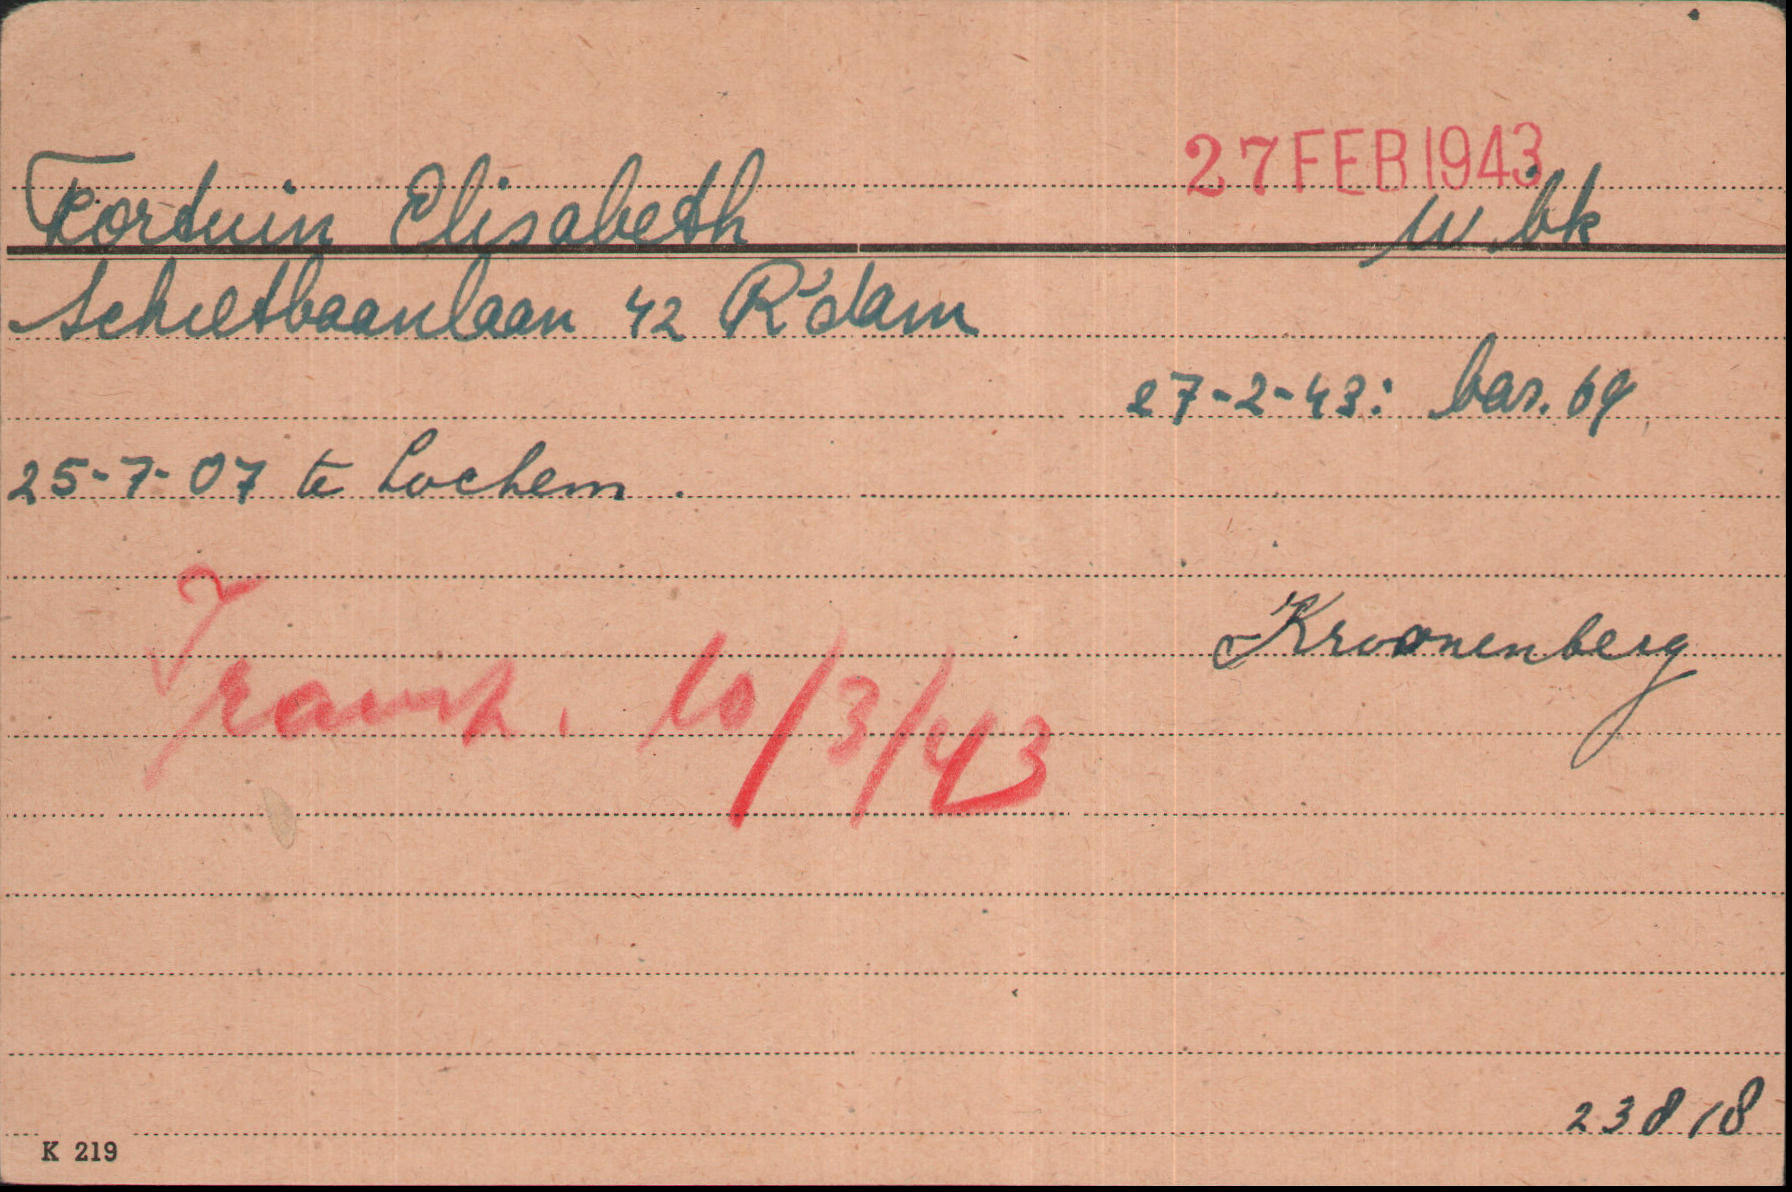 27 FEB 1943
Fortuin Elisabeth
W.bk
Schietbaanlaan 42 R'dam
27-2-43: bar. 69
25-7-07 te Lochem.
Kroonenberg
Transp. 10/3/43
23818
K 219